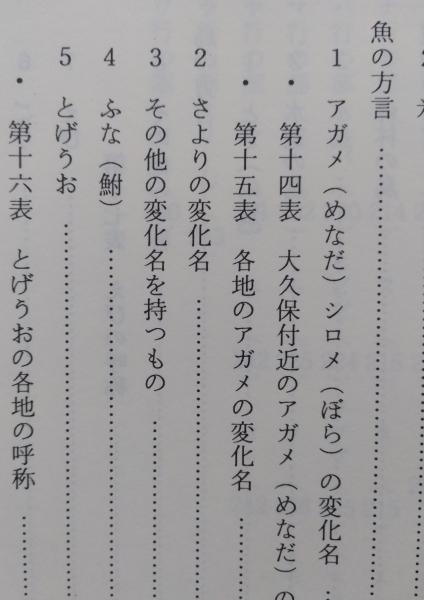 魚の方言……………………
1 アガメ（めなだ）シロメ（ぼら）の変化名…
• 第十四表 大久保付近のアガメ（めなだ）の
• 第十五表 各地のアガメの変化名…………
2 さよりの変化名……………………
3 その他の変化名を持つもの……………………
4 ふな（鮒）……………………
5 とげうお……………………
• 第十六表 とげうおの各地の呼称…………